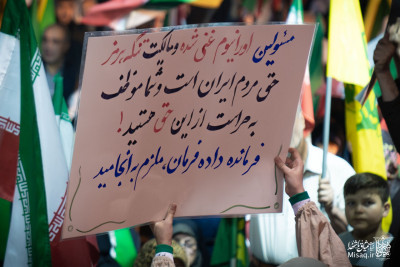 مسئولین اورانیوم غنی شده و مالکیت تنگه هرمز
حق مردم ایران است و شما موظف
به حراست از این حق هستید!
فرمانده داده فرمان، ملزم به انجامید
Misaq.ir